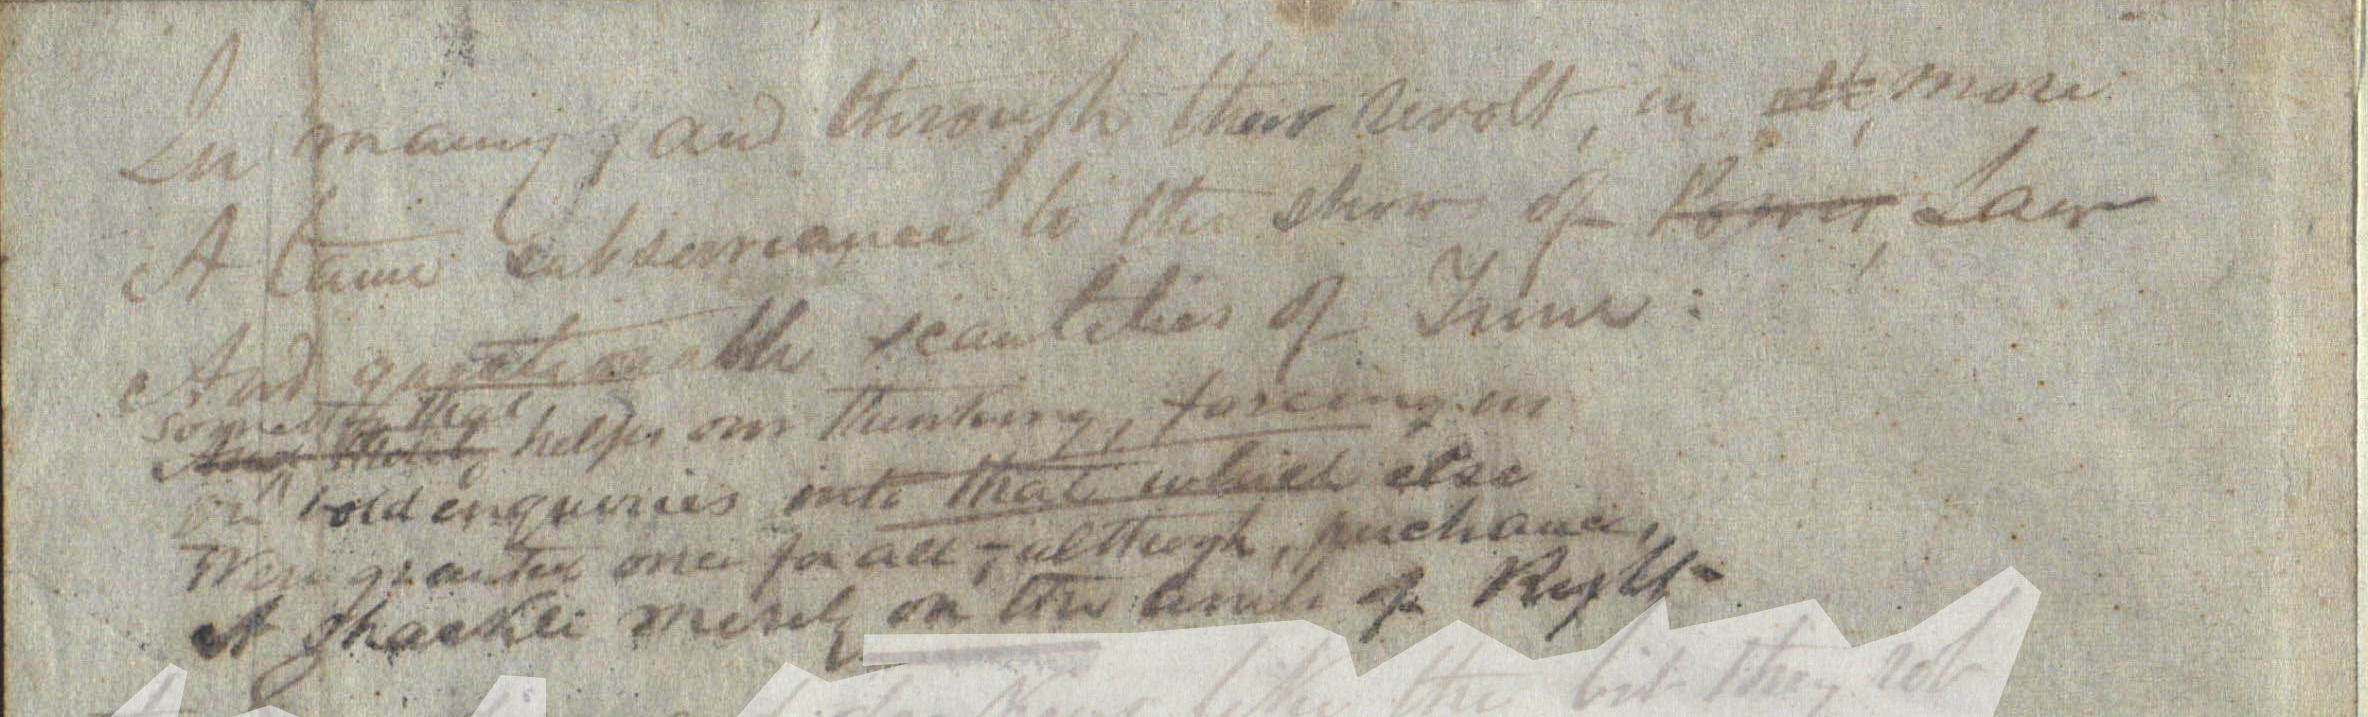 In many, and through their revolt, in all, more
A tame subserviance to the show of Power, Law
And questionable scantities of Time:
something that
And that helps our thinking, forcing us
On bold enquiries into that which else
Were granted once for all;—although, perchance,
A shackle merely on the limb of Right—
like the bit they rob